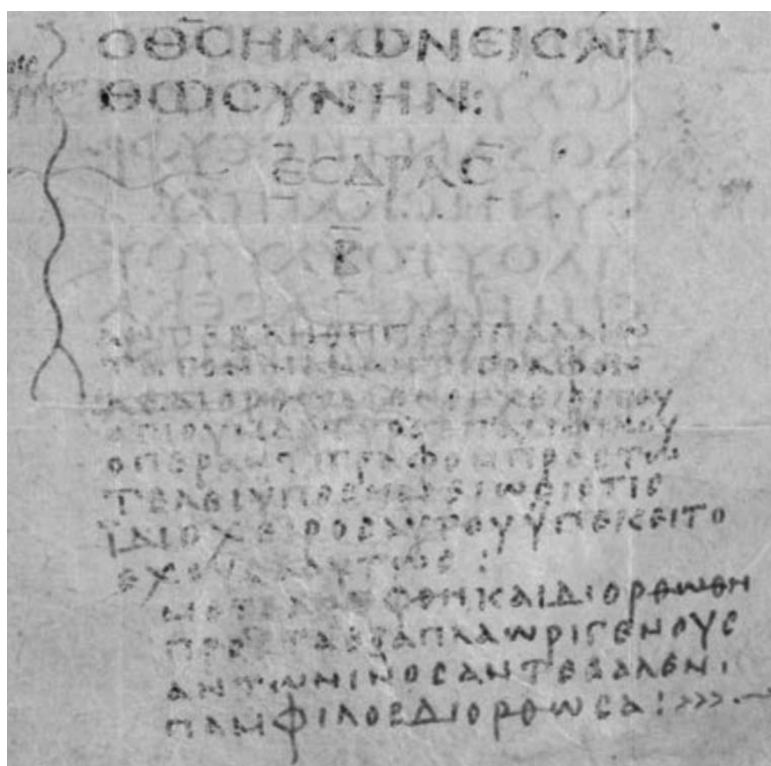 ΟΘ̅Ϲ̅ΗΜΩΝΕΙϹΑΓΑ
ΘΩϹΥΝΗΝ:
ΕϹΔΡΑϹ
Β̅
ΑΝΤΕΒΛΗΘΗΠΡΟϹΠΑΛΑΙΩ
ΤΑΤΟΝΛΙΑΝΑΝΤΙΓΡΑΦΟΝ
ΔΕΔΙΟΡΘΩΜΕΝΟΝΧΕΙΡΙΤΟΥ
ΑΓΙΟΥΜΑΡΤΥΡΟϹΠΑΜΦΙΛΟΥ
ΟΠΕΡΑΝΤΙΓΡΑΦΟΝΠΡΟϹΤΩ
ΤΕΛΕΙΫΠΟϹΗΜΕΙΩϹΙϹΤΙϹ
ΪΔΙΟΧΕΙΡΟϹΑΥΤΟΥΫΠΕΚΕΙΤΟ
ΕΧΟΥϹΑΟΥΤΩϹ:
ΜΕΤΕΛΗΜΦΘΗΚΑΙΔΙΟΡΘΩΘΗ
ΠΡΟϹΤΑΕΞΑΠΛΑΩΡΙΓΕΝΟΥϹ
ΑΝΤΩΝΙΝΟϹΑΝΤΕΒΑΛΕΝ·
ΠΑΜΦΙΛΟϹΔΙΟΡΘΩϹΑ:>>>·—